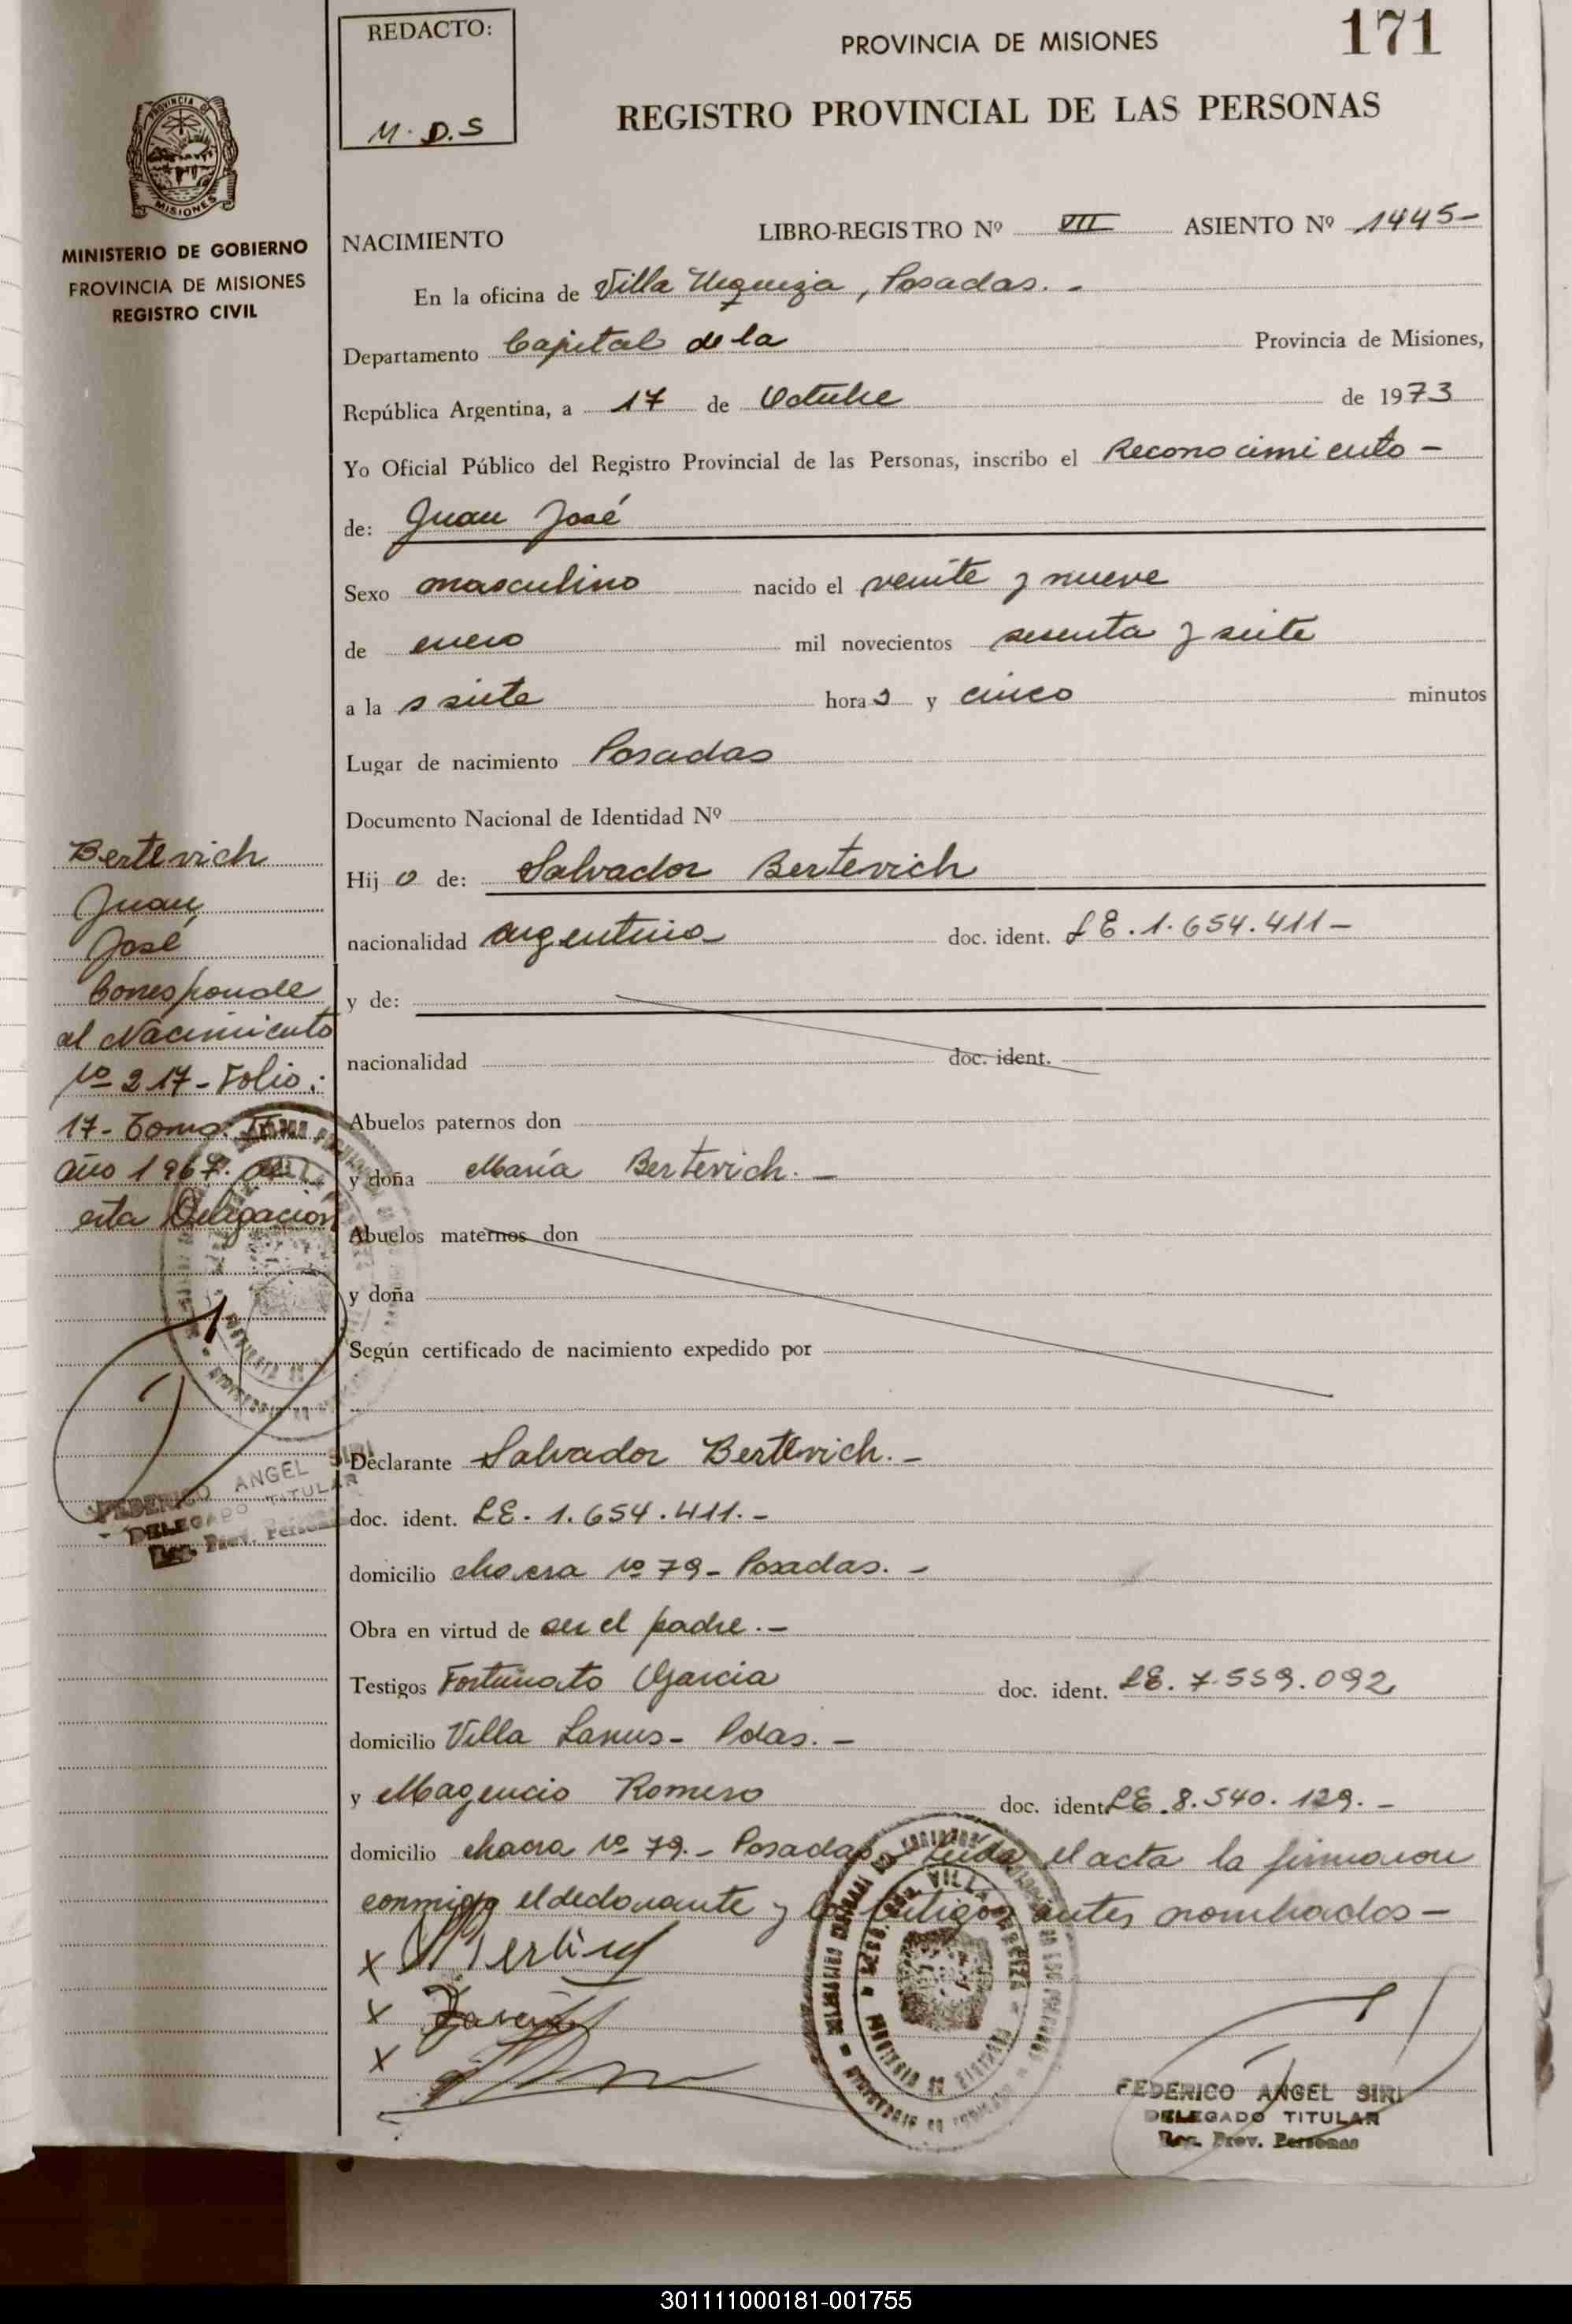 REDACTO:
M. D. S
PROVINCIA DE MISIONES
171
REGISTRO PROVINCIAL DE LAS PERSONAS
PROVINCIA D
MISIONES
MINISTERIO DE GOBIERNO
PROVINCIA DE MISIONES
REGISTRO CIVIL
NACIMIENTO
LIBRO-REGISTRO Nº VII ASIENTO Nº 1445-
En la oficina de Villa Urquiza, Posadas. -
Departamento Capital de la Provincia de Misiones,
República Argentina, a 17 de Octubre de 1973
Yo Oficial Público del Registro Provincial de las Personas, inscribo el Reconocimiento -
de: Juan José
Sexo masculino nacido el veinte y nueve
de enero mil novecientos sesenta y siete
a la s siete hora s y cinco minutos
Lugar de nacimiento Posadas
Documento Nacional de Identidad Nº
Hij o de: Salvador Bertevich
nacionalidad argentina doc. ident. LE. 1.654.411-
y de:
nacionalidad doc. ident.
Abuelos paternos don
y doña María Bertevich. -
Abuelos maternos don
y doña
Según certificado de nacimiento expedido por
Declarante Salvador Bertevich. -
doc. ident. LE. 1.654.411. -
domicilio chacra Nº 79 - Posadas. -
Obra en virtud de ser el padre. -
Testigos Fortunato Garcia doc. ident. LE. 7.559.092
domicilio Villa Lanus - Pdas. -
y Magencio Romero doc. ident. LE. 8.540.129. -
domicilio chacra Nº 79. - Posadas. - Leida el acta la firmaron
conmigo el declarante y los testigos antes nombrados -
Bertevich
Juan
José
Corresponde
al Nacimiento
Nº 217 - Folio:
17 - Tomo:
año 1967. de
esta Delegación
FEDERICO ANGEL SIRI
DELEGADO TITULAR
Reg. Prov. Personas
x
x
x
FEDERICO ANGEL SIRI
DELEGADO TITULAR
Reg. Prov. Personas
301111000181-001755